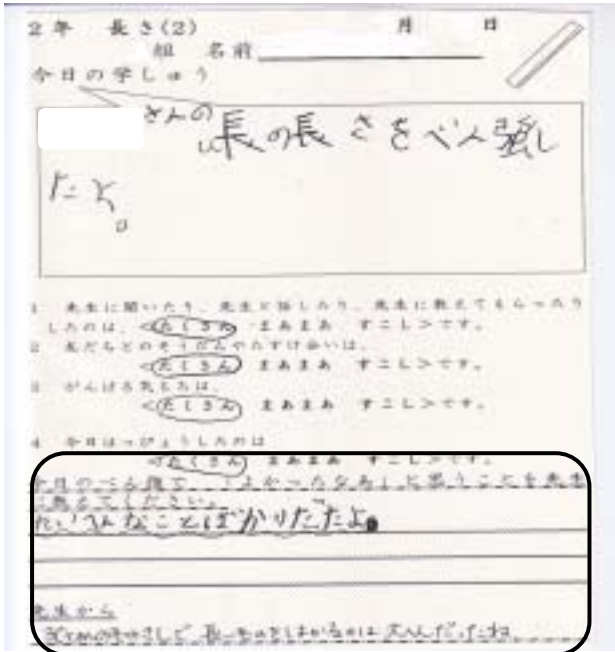 2年 長さ(2) 月 日
組 名前
今日の学しゅう
さんの 長の長さをべん強し
たよ。
1 先生に聞いたり、先生と話したり、先生に教えてもらったり
したのは、<たくさん まあまあ すこし>です。
2 友だちとのそうだんやたすけ合いは、
<たくさん まあまあ すこし>です。
3 がんばる気もちは、
<たくさん まあまあ すこし>です。
4 今日はっぴょうしたのは
<たくさん まあまあ すこし>です。
今日のべん強で、「よかったなあ」と思うことを先生
に教えてください。
たいへんなことばかりだったよ。
先生から
30cmのものさしで 長いものをはかるのは大へんだったね